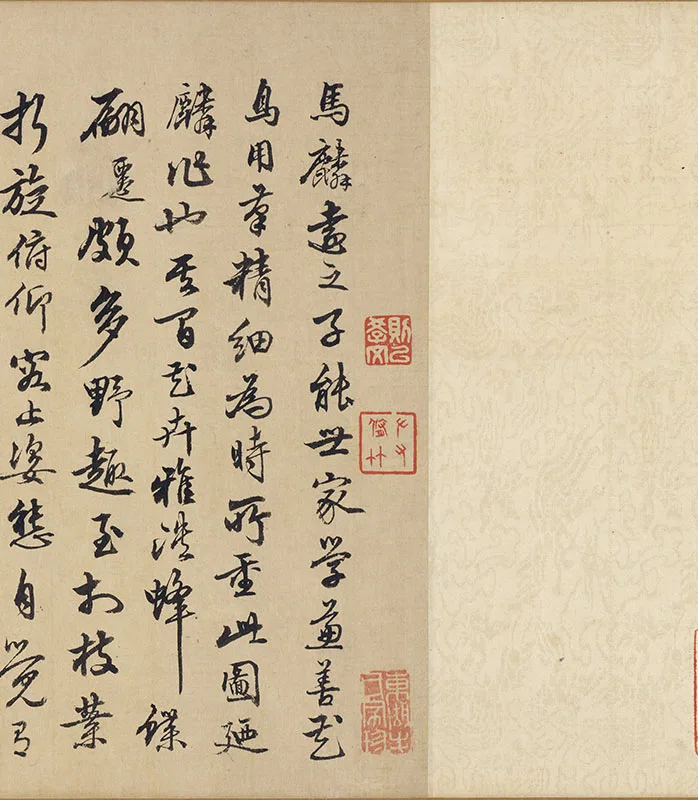 馬麟遠之子能世家學兼善花
鳥用筆精細為時所重此圖廼
麟作也其間花卉雅淡蜂蝶
翩遷頗多野趣至於枝葉
折旋俯仰容止姿態自覺有